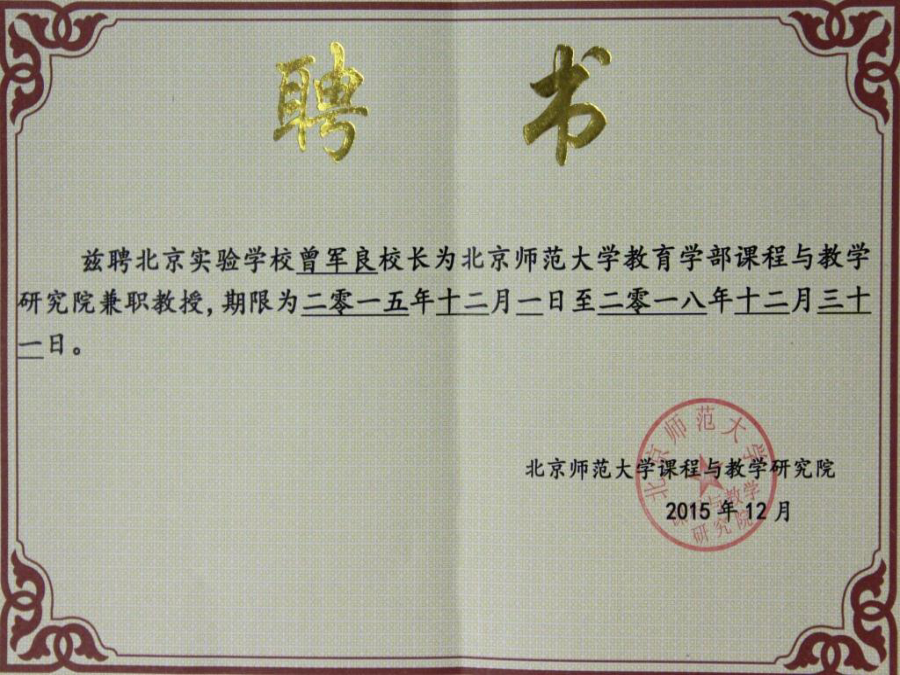 聘书
兹聘北京实验学校曾军良校长为北京师范大学教育学部课程与教学
研究院兼职教授,期限为二零一五年十二月一日至二零一八年十二月三十
一日。
北京师范大学课程与教学研究院
2015年12月
北京师范大学
课程与教学
研究院